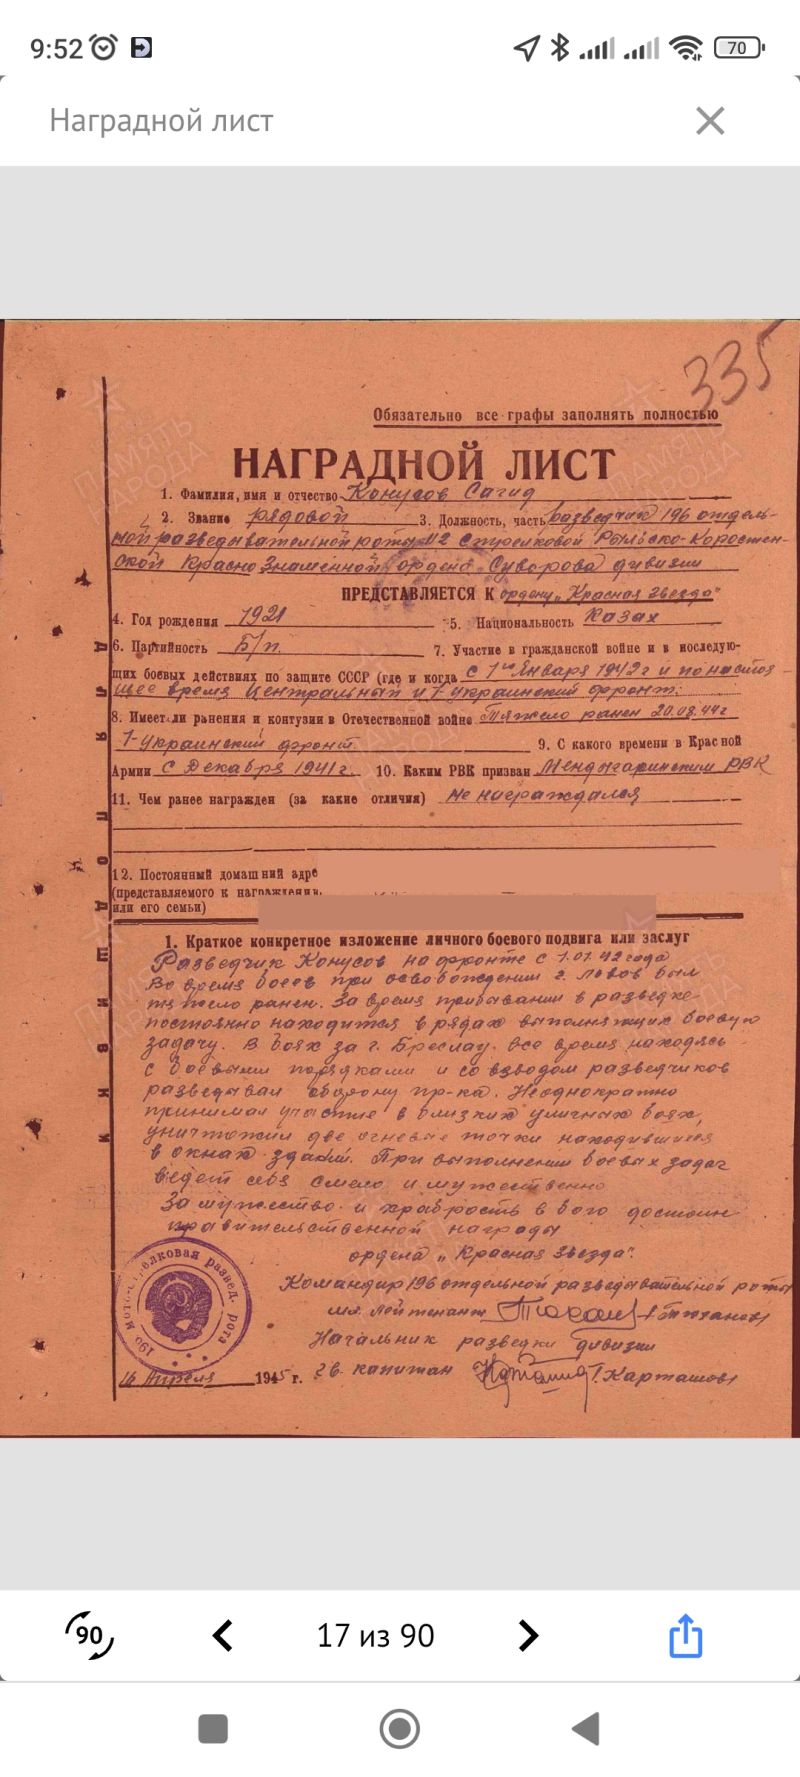 9:52
70
Наградной лист
335
Обязательно все графы заполнять полностью
НАГРАДНОЙ ЛИСТ
1. Фамилия, имя и отчество Конусов Сагид
2. Звание рядовой 3. Должность, часть разведчик 196 отдель-
ной разведывательной роты 112 Стрелковой Рыльско-Коростен-
ской Краснознаменной ордена Суворова дивизии
ПРЕДСТАВЛЯЕТСЯ К ордену „Красная Звезда"
4. Год рождения 1921 5. Национальность Казах
6. Партийность Б/п. 7. Участие в гражданской войне и в последую-
щих боевых действиях по защите СССР (где и когда с 1го Января 1942г и по настоя-
щее время Центральный и 1-украинский фронт.
8. Имеет ли ранения и контузии в Отечественной войне Тяжело ранен 20.08.44г
1-украинский фронт 9. С какого времени в Красной
Армии с Декабря 1941г. 10. Каким РВК призван Мендыгаринским РВК
11. Чем ранее награжден (за какие отличия) Не награждался
12. Постоянный домашний адре
(представляемого к награждению
или его семьи)
ДЛЯ ПОДШИВКИ
1. Краткое конкретное изложение личного боевого подвига или заслуг
Разведчик Конусов на фронте с 1.01.42 года
Во время боев при освобождении г. Львов был
тяжело ранен. За время прибывании в разведке
постоянно находится в рядах выполняющих боевую
задачу. В боях за г. Бреслау. Все время находясь
с боевыми порядками и со взводом разведчиков
разведывал оборону пр-ка. Неоднократно
принимал участие в близких уличных боях,
уничтожил две огневые точки находившиися
в окнах зданий. При выполнении боевых задач
ведет себя смело и мужественно
За мужество и храбрость в бою достоин
правительственной награды
ордена „Красная Звезда".
Командир 196 отдельной разведывательной роты
мл. лейтенант /Тюханов/
Начальник разведки дивизии
гв. капитан /Карташов/
мото-стрелковая развед. рота
16 Апреля 1945 г.
ПАМЯТЬ НАРОДА
90
17 из 90